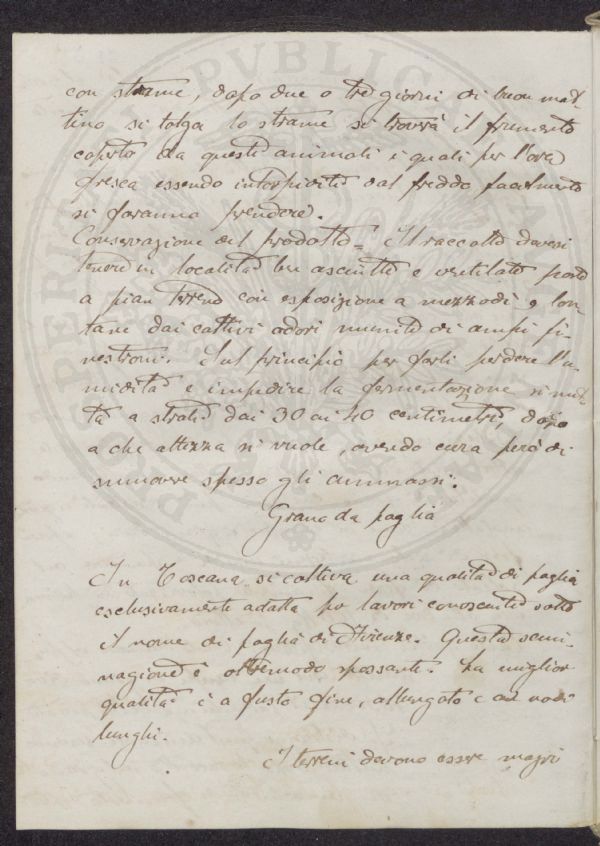 con strame, dopo due o tre giorni di buon mat-
tino si tolga lo strame si troverà il frumento
coperto da questi animali i quali per l'ora
fresca essendo intorpiditi dal freddo, facilmente
si faranno prendere.
Conservazione del prodotto = Il raccolto devesi
tenere in località ben asciutte e ventilate poste
a pian terreno con esposizione a mezzodì e lon-
tane dai cattivi odori munite di ampi fi-
nestroni. Sul principio per farli perdere l'u-
midità e impedire la fermentazione si met-
ta a strati dai 30 ai 40 centimetri, dopo
a che altezza si vuole, avendo cura però di
smuovere spesso gli ammassi.
Grano da paglia
In Toscana si coltiva una qualità di paglia
esclusivamente adatta pei lavori conosciuti sotto
il nome di paglia di Firenze. Questa semi-
nagione è oltremodo spossante. La miglior
qualità è a fusto fine, allungato e coi nodi
lunghi.
I terreni devono essere magri